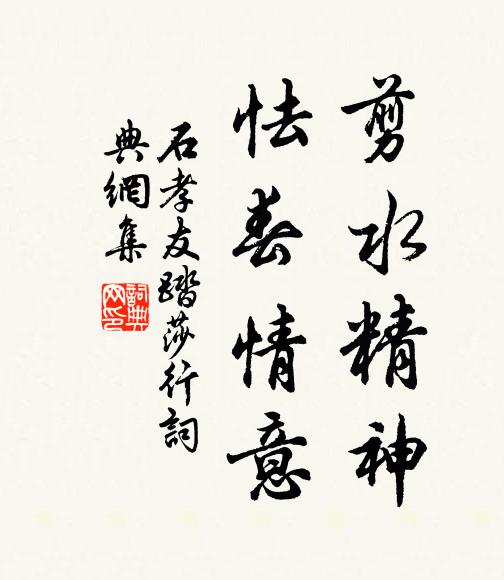 剪水精神
怯春情意
石孝友踏莎行詞
典網集
詞典
网印